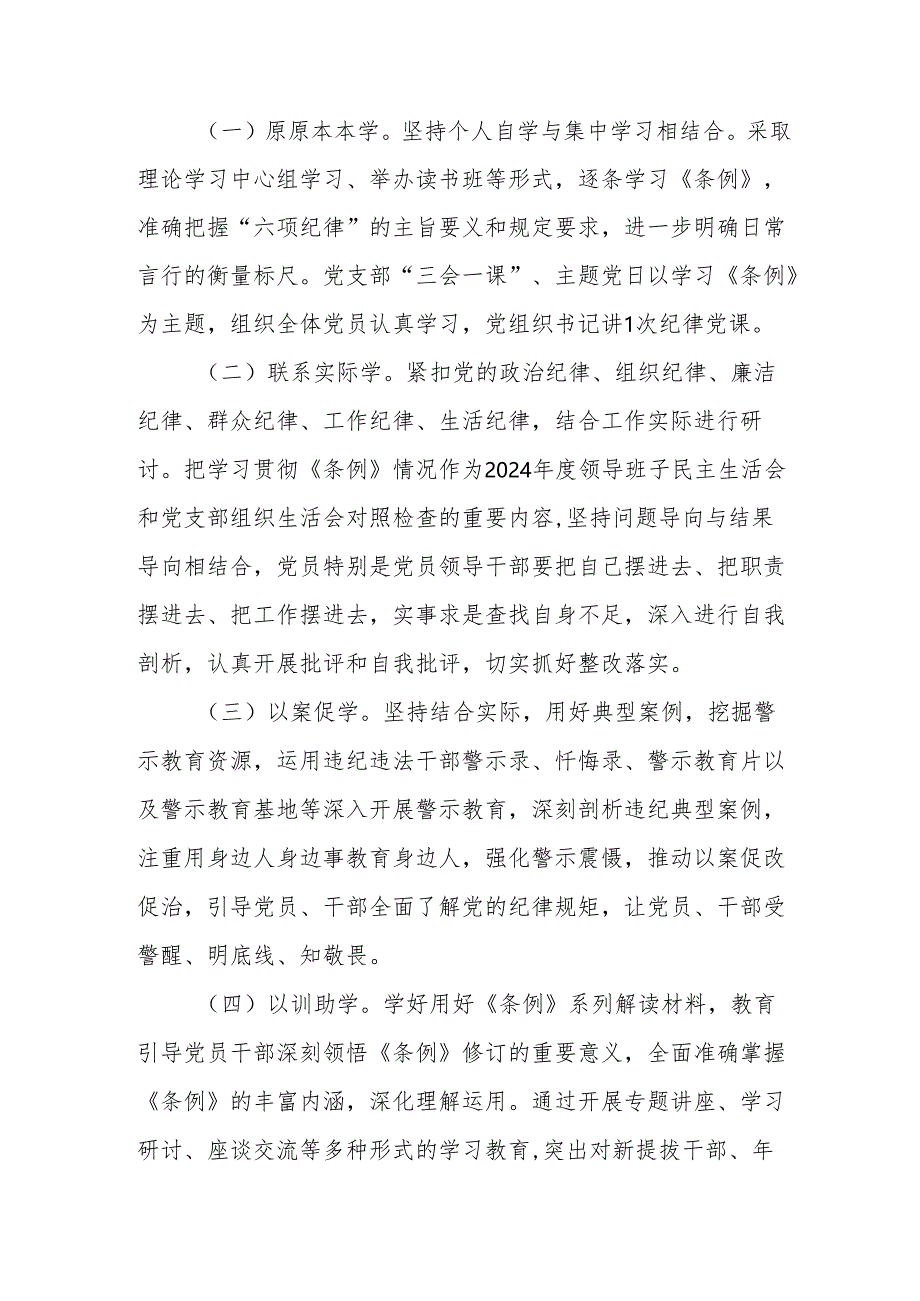 （一）原原本本学。坚持个人自学与集中学习相结合。采取
理论学习中心组学习、举办读书班等形式，逐条学习《条例》，
准确把握“六项纪律”的主旨要义和规定要求，进一步明确日常
言行的衡量标尺。党支部“三会一课”、主题党日以学习《条例》
为主题，组织全体党员认真学习，党组织书记讲1次纪律党课。
（二）联系实际学。紧扣党的政治纪律、组织纪律、廉洁
纪律、群众纪律、工作纪律、生活纪律，结合工作实际进行研
讨。把学习贯彻《条例》情况作为2024年度领导班子民主生活会
和党支部组织生活会对照检查的重要内容,坚持问题导向与结果
导向相结合，党员特别是党员领导干部要把自己摆进去、把职责
摆进去、把工作摆进去，实事求是查找自身不足，深入进行自我
剖析，认真开展批评和自我批评，切实抓好整改落实。
（三）以案促学。坚持结合实际，用好典型案例，挖掘警
示教育资源，运用违纪违法干部警示录、忏悔录、警示教育片以
及警示教育基地等深入开展警示教育，深刻剖析违纪典型案例，
注重用身边人身边事教育身边人，强化警示震慑，推动以案促改
促治，引导党员、干部全面了解党的纪律规矩，让党员、干部受
警醒、明底线、知敬畏。
（四）以训助学。学好用好《条例》系列解读材料，教育
引导党员干部深刻领悟《条例》修订的重要意义，全面准确掌握
《条例》的丰富内涵，深化理解运用。通过开展专题讲座、学习
研讨、座谈交流等多种形式的学习教育,突出对新提拔干部、年